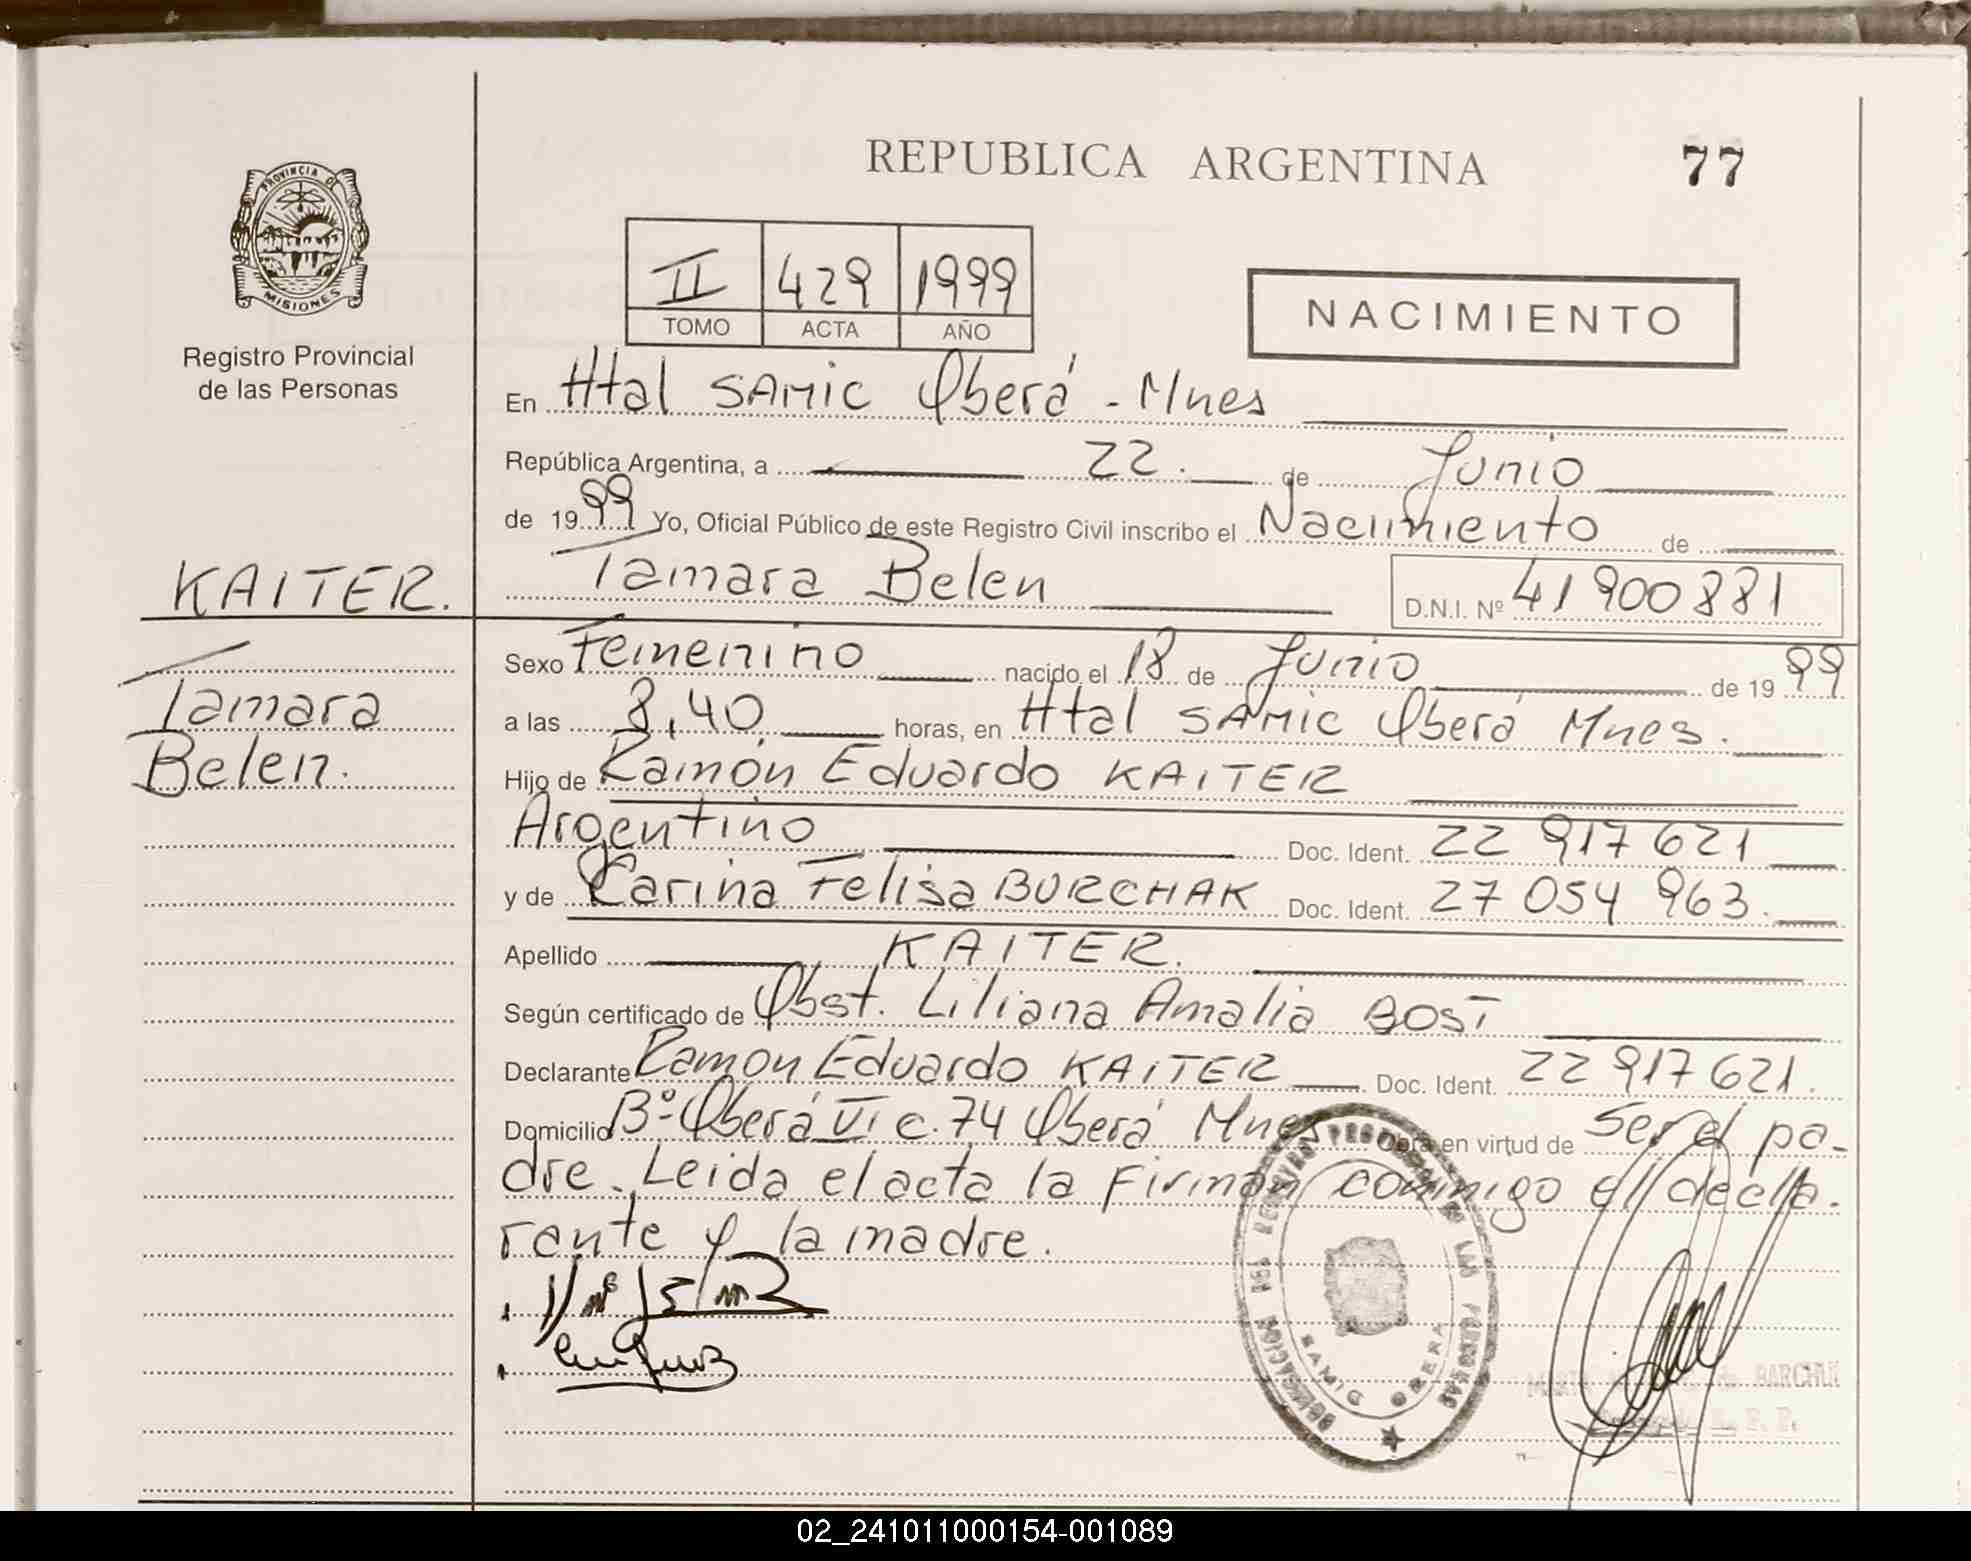 REPUBLICA ARGENTINA
77
PROVINCIA DE
MISIONES
Registro Provincial
de las Personas
II 429 1999
TOMO ACTA AÑO
NACIMIENTO
En Htal SAMIC Oberá - Mnes
República Argentina, a 22. de Junio
de 1999 Yo, Oficial Público de este Registro Civil inscribo el Nacimiento de
Tamara Belen D.N.I. Nº 41 900 881
KAITER.
Tamara
Belen.
Sexo Femenino nacido el 18 de Junio de 1999
a las 8,40 horas, en Htal SAMIC Oberá Mnes.
Hijo de Ramón Eduardo KAITER
Argentino Doc. Ident. 22 917 621
y de Karina Felisa BURCHAK Doc. Ident. 27 054 963.
Apellido KAITER.
Según certificado de Obst. Liliana Amalia BOST
Declarante Ramon Eduardo KAITER Doc. Ident. 22 917 621.
Domicilio Bº Oberá VI c. 74 Oberá Mnes Obra en virtud de Ser el pa-
dre. Leida el acta la Firman conmigo el decla-
rante y la madre.
SAMIC OBERA
02_241011000154-001089